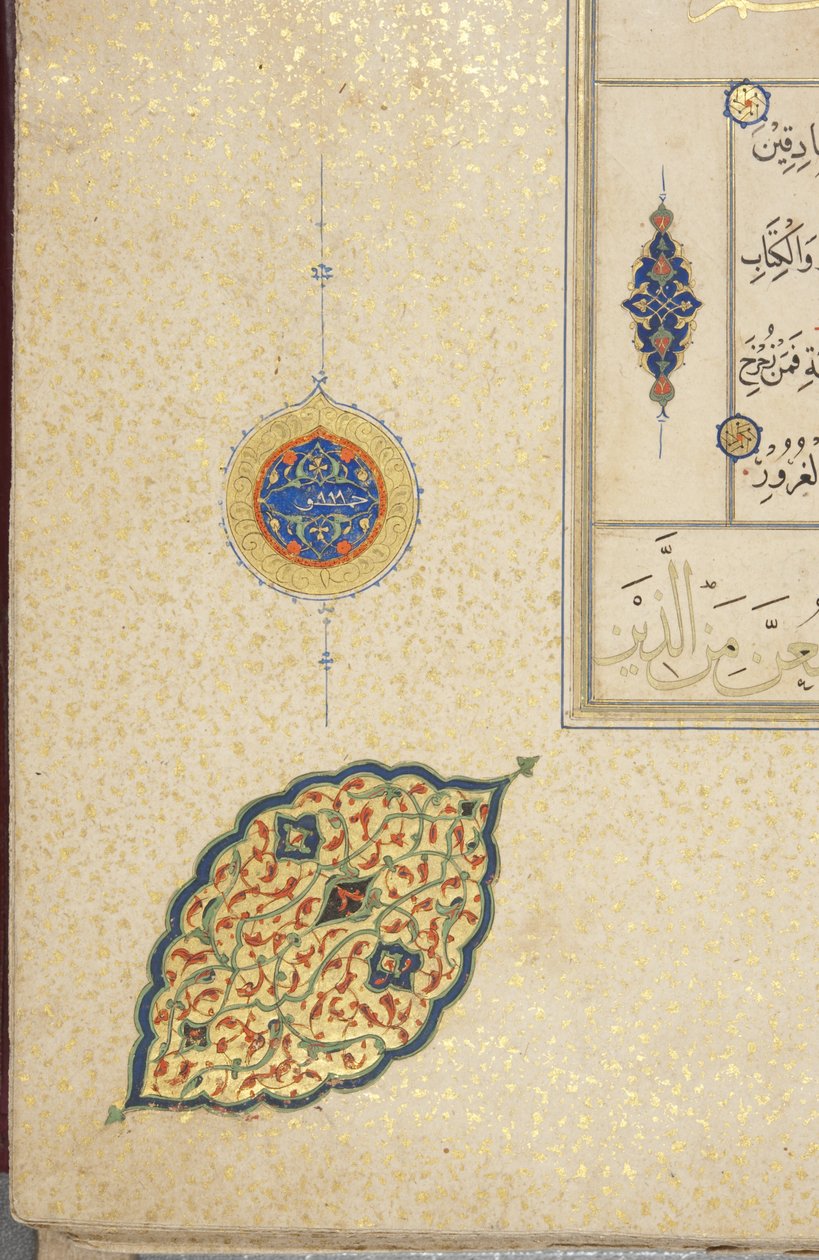 ادِقِيْنَ
وَالْكِتَابِ
ةِ فَمَنْ زُحْزِحَ
لْغُرُوْرِ
مَعُنَّ مِنَ الَّذِيْنَ